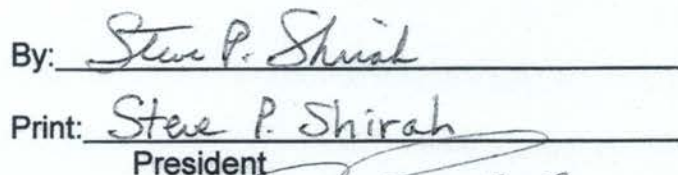 By: Steve P. Shirah
Print: Steve P. Shirah
President